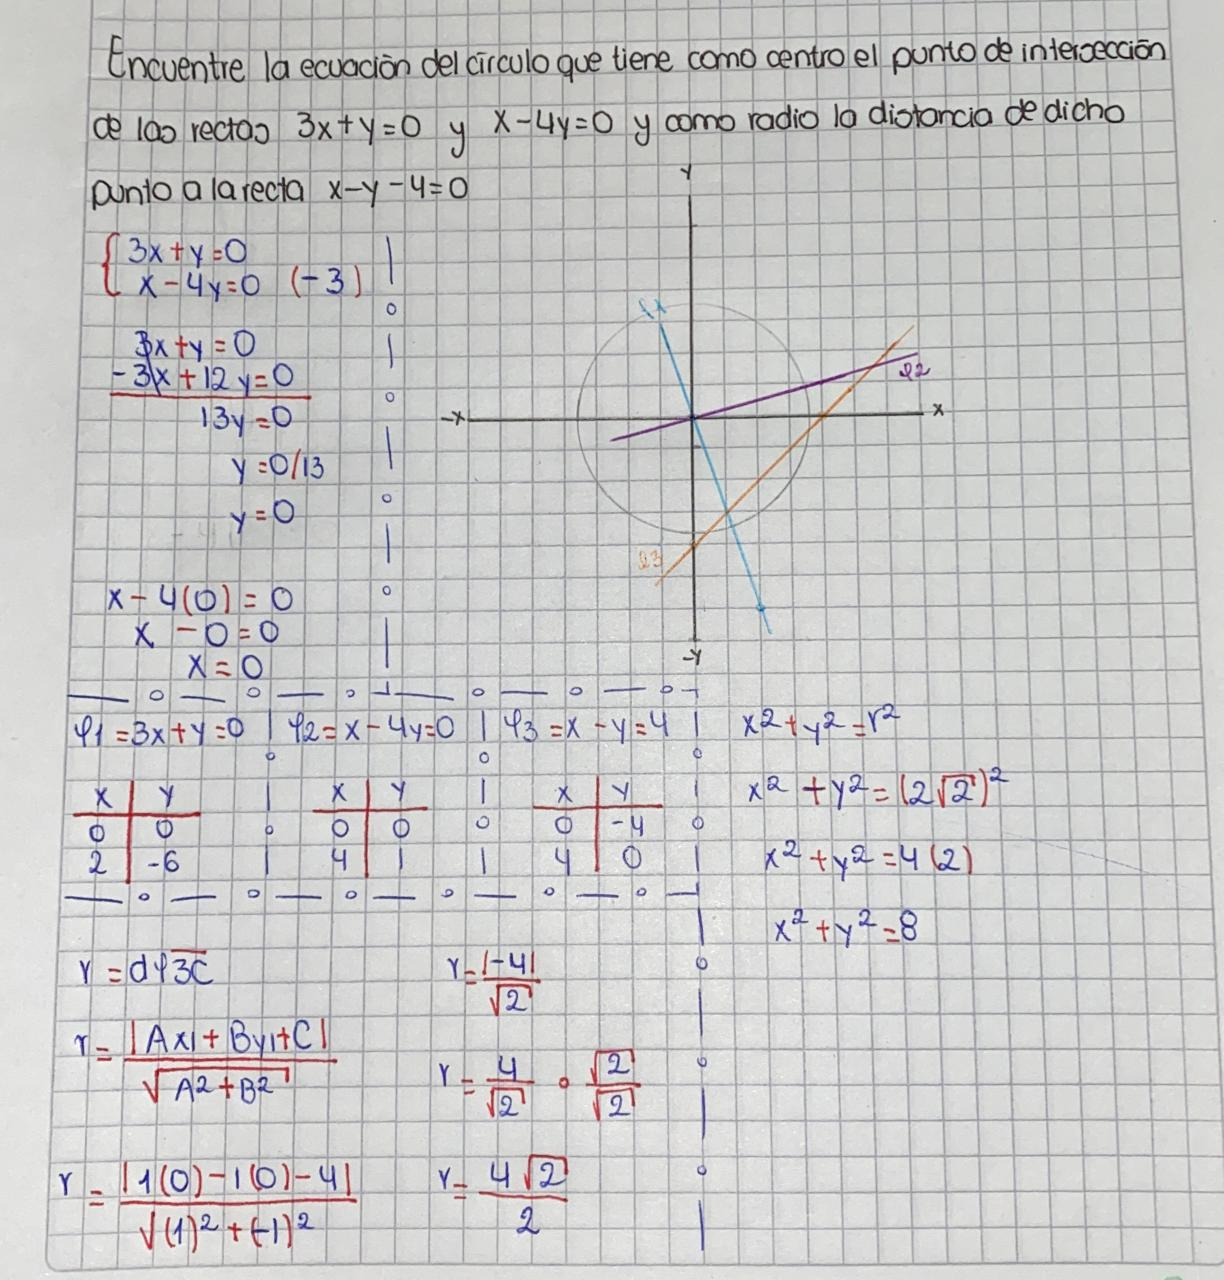 Encuentre la ecuación del círculo que tiene como centro el punto de intersección
de las rectas 3x+y=0 y x-4y=0 y como radio la distancia de dicho
punto a la recta x-y-4=0
Y
{ 3x+y=0
x-4y=0 (-3)
3x+y=0
-3x+12y=0
13y=0
y=0/13
y=0
x-4(0)=0
x-0=0
x=0
ℓ1
ℓ2
-X
X
ℓ3
-Y
ℓ1=3x+y=0 ℓ2=x-4y=0 ℓ3=x-y=4
x y x y x y
0 0 0 0 0 -4
2 -6 4 1 4 0
x²+y²=r²
x²+y²=(2√2)²
x²+y²=4(2)
x²+y²=8
r=dℓ3C
r=|Ax1+By1+C|/√A²+B²
r=|1(0)-1(0)-4|/√(1)²+(-1)²
r=|-4|/√2
r=4/√2 • √2/√2
r=4√2/2